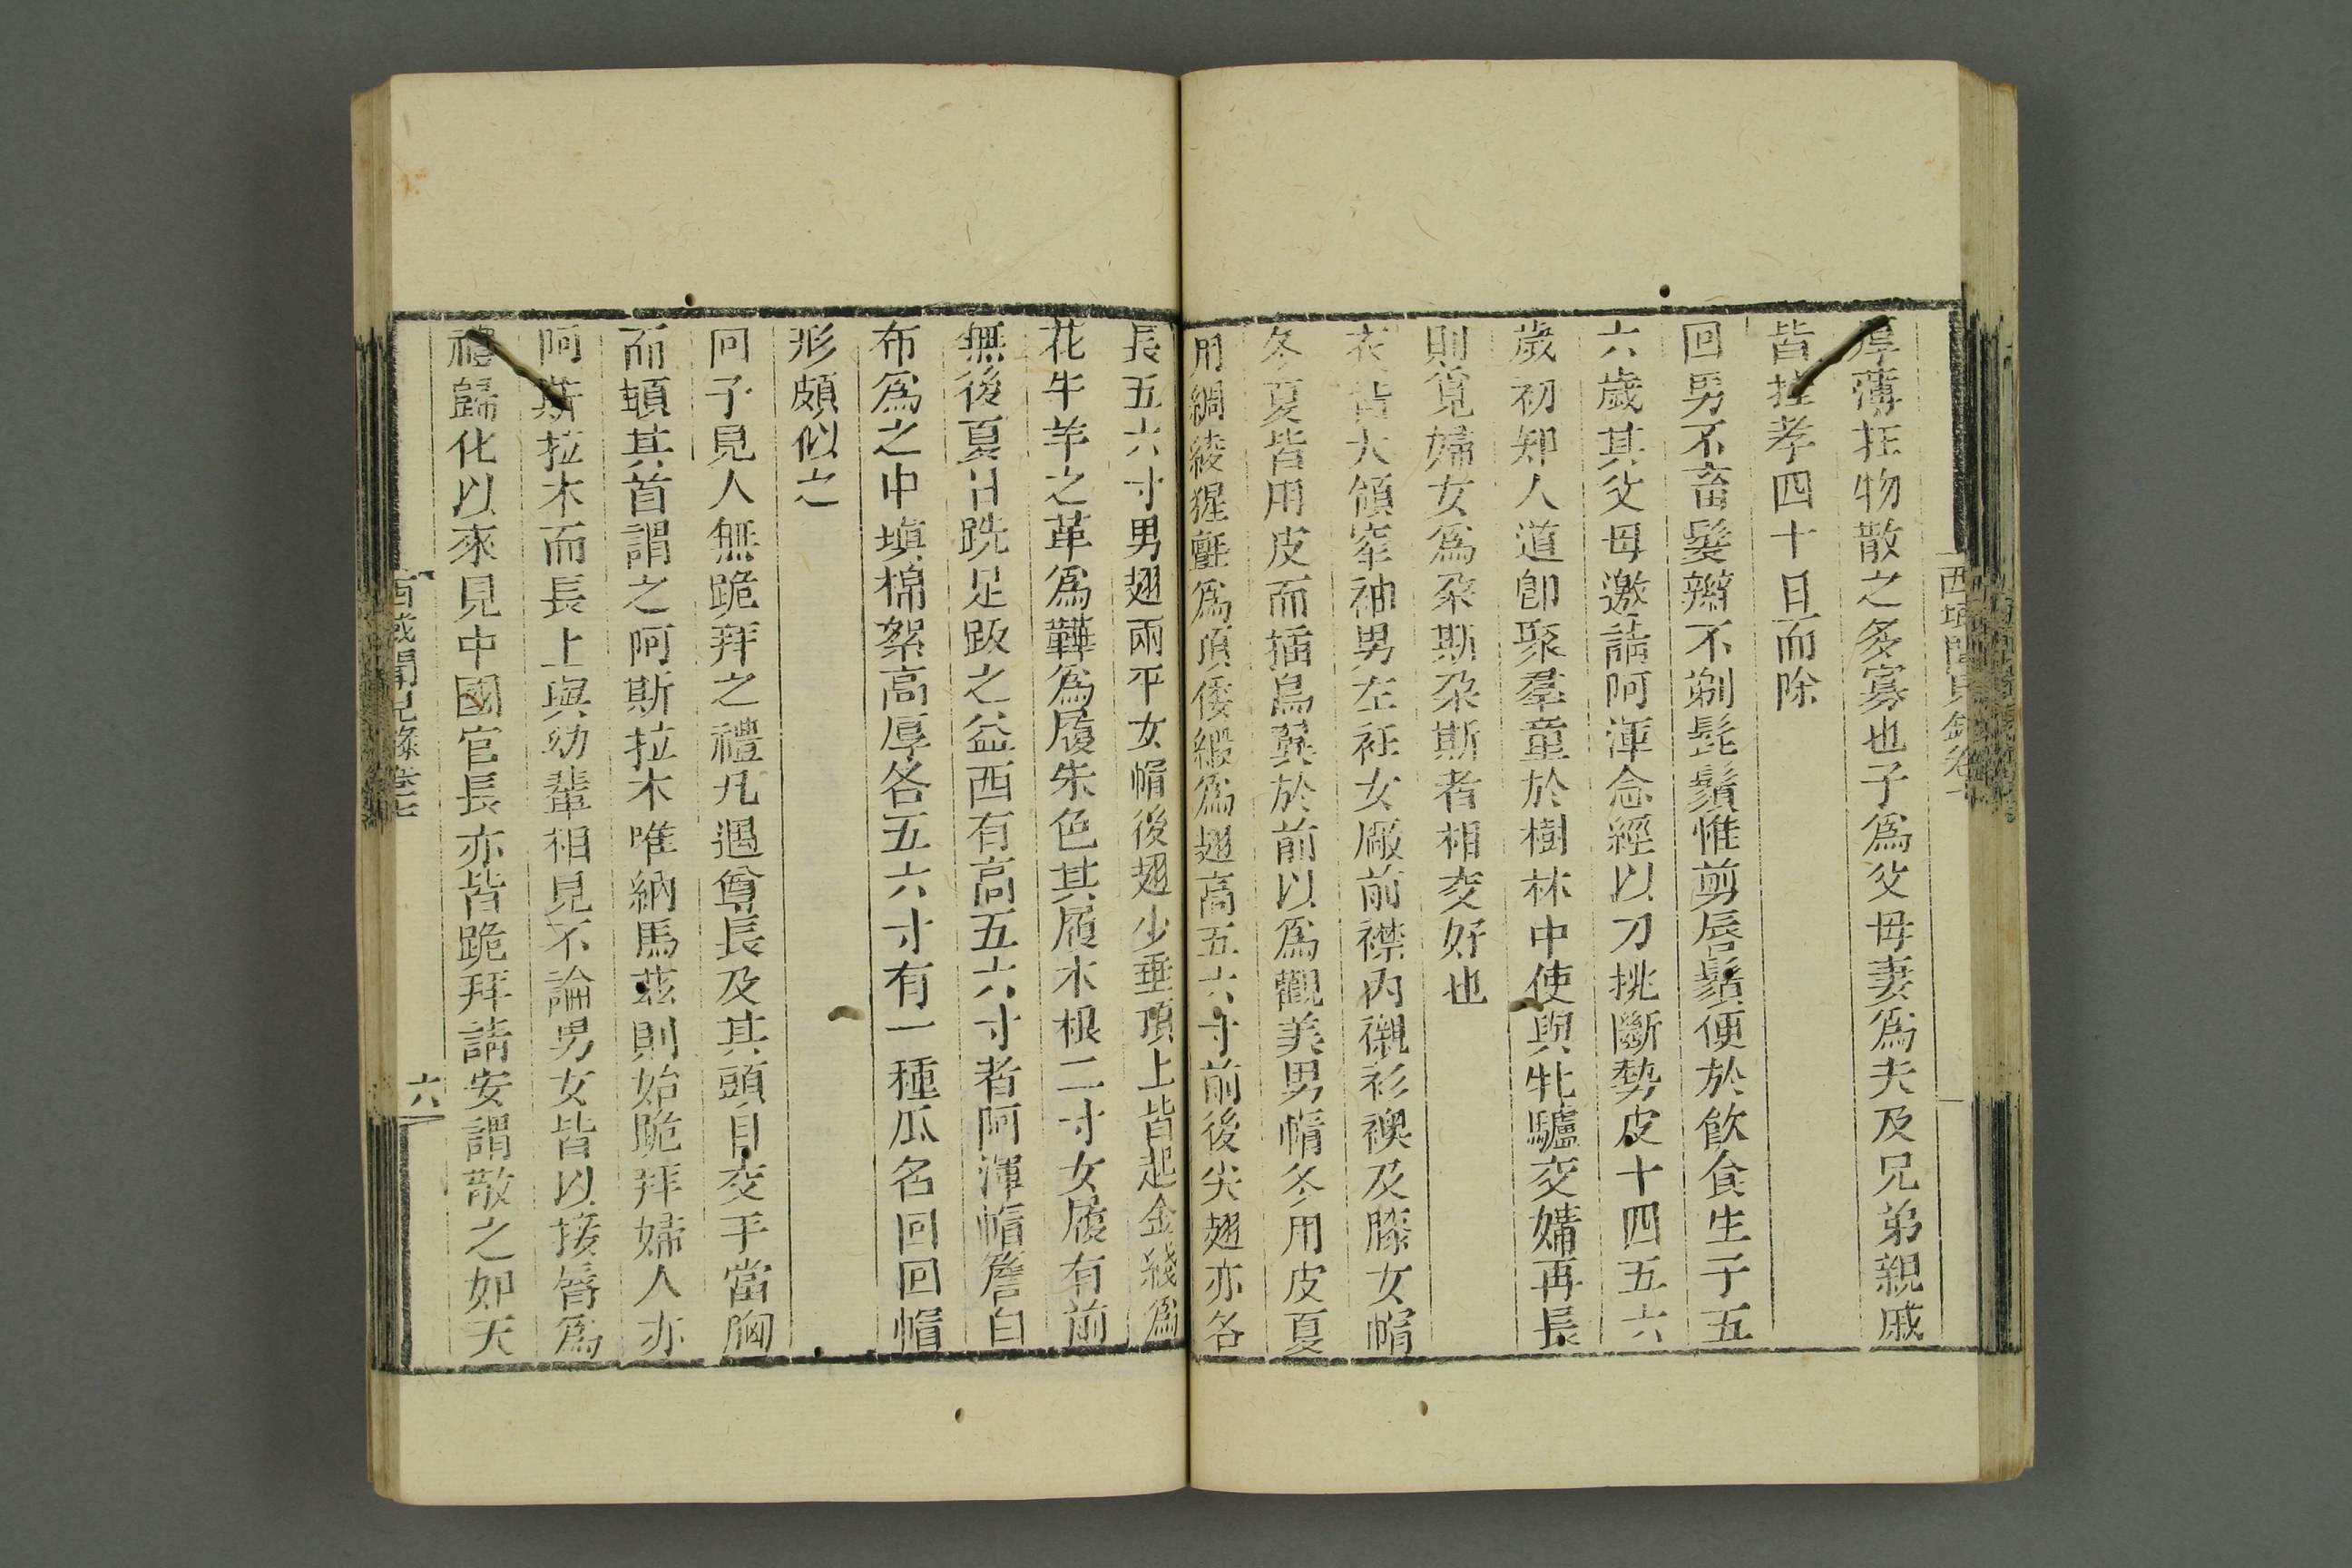 厚薄在物散之多寡也子爲父母妻爲夫及兄弟親戚
皆掛孝四十日而除
回男不畜髮辮不剃髭鬚惟剪唇鬚便於飲食生子五
六歲其父母邀請阿渾念經以刀挑斷勢皮十四五六
歲初知人道卽聚羣童於樹林中使與牝驢交媾再長
則覓婦女爲朶斯朶斯者相交好也
衣皆大領窄袖男左衽女廠前襟内襯衫襖及膝女帽
冬夏皆用皮而插鳥翼於前以爲觀美男帽冬用皮夏
用綢綾猩氈爲頂倭緞爲翅高五六寸前後尖翅亦各
長五六寸男翅兩平女帽後翅少垂頂上皆起金綫爲
花牛羊之革爲鞾爲履朱色其履木根二寸女履有前
無後夏日跣足趿之益西有高五六寸者阿渾帽簷白
布爲之中塡棉絮高厚各五六寸有一種瓜名回回帽
形頗似之
回子見人無跪拜之禮凡遇尊長及其頭目交手當胸
而頓其首謂之阿斯拉木唯納馬茲則始跪拜婦人亦
阿斯拉木而長上與幼輩相見不論男女皆以接脣爲
禮歸化以來見中國官長亦皆跪拜請安謂敬之如天
西域聞見錄卷七
六